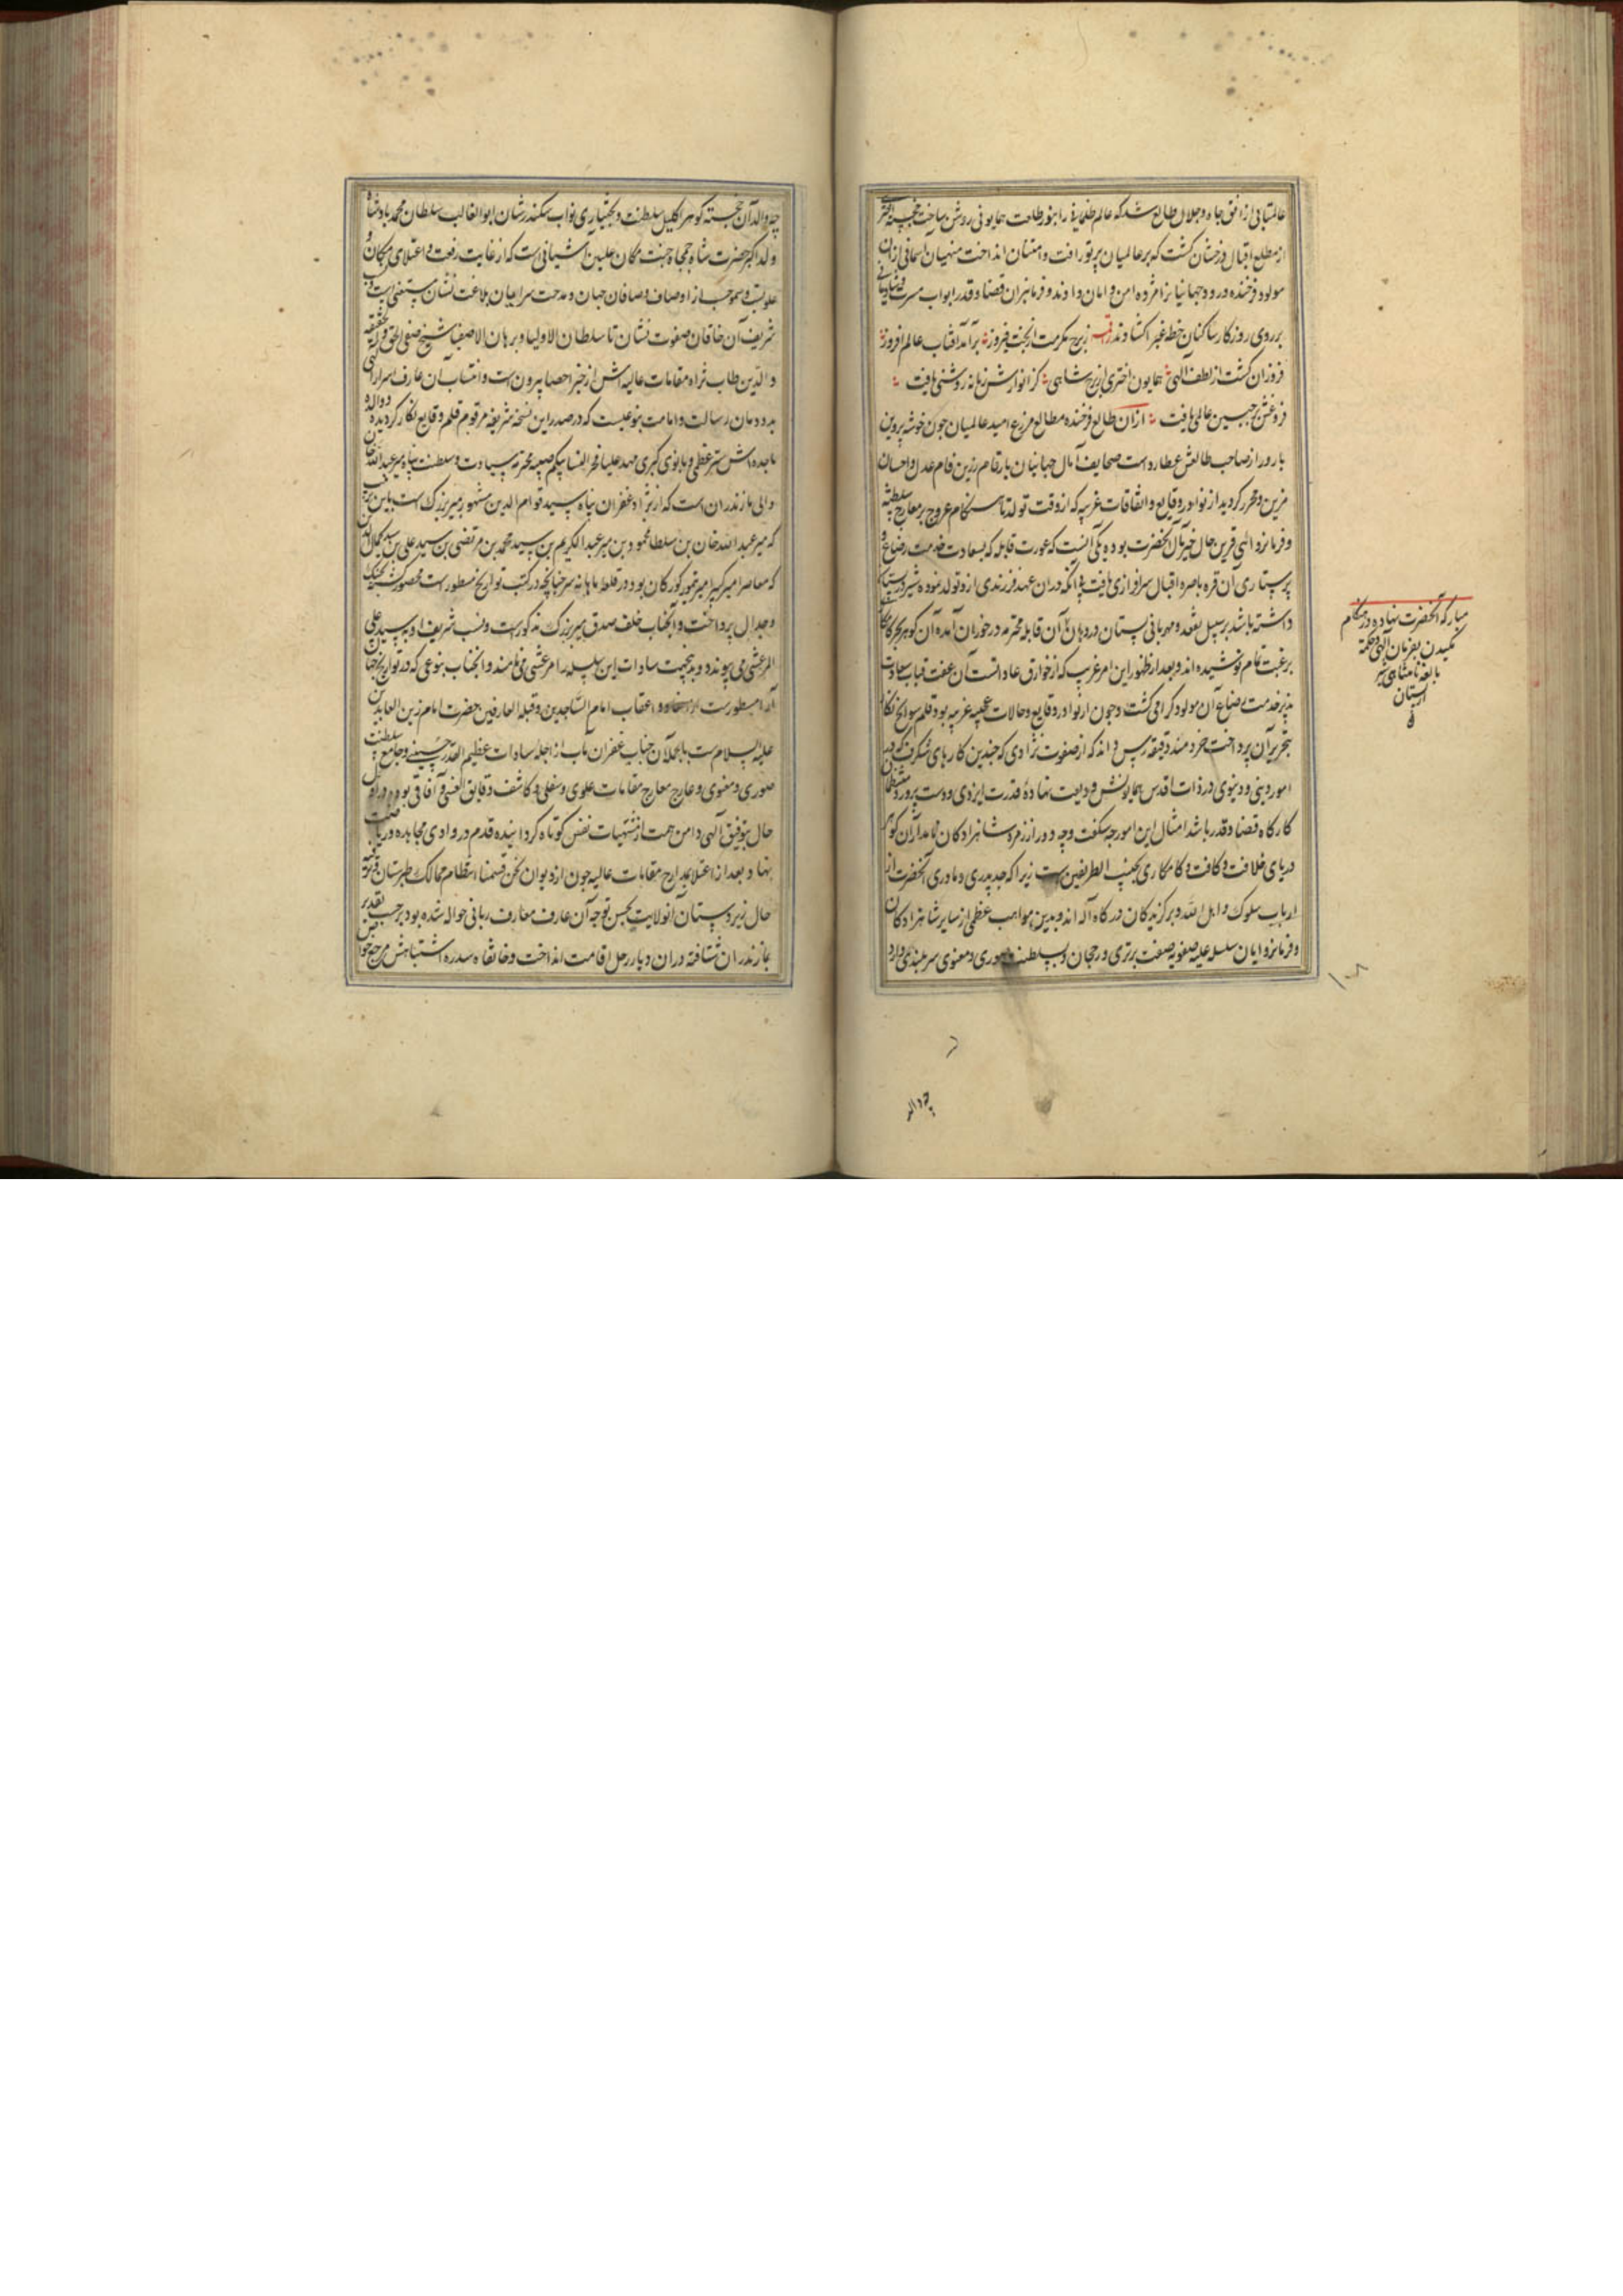 عالمتابی از افق جاه و جلال طالع شد که عالم ظلمانی را بنور طلعت همایونی روشن ساخت خجسته اختری
از مطلع اقبال درخشان کشت که بر عالمیان پرتو رافت و امتنان انداخت منهیان آسمانی ازان
مولود فرخنده ورود جهانیانرا مژده امن و امان دادند و فرمانبران قضا و قدر ابواب مسرت و شادمانی
بر روی روزکار ساکنان خطه غبرا کشادند نظم ز برج مکرمت از بخت فیروز برآمد آفتاب عالم افروز
فروزان کشت از لطف الهی همایون اختری از برج شاهی کز انوارش زمانه روشنی یافت
فروغش بر جبین عالمی یافت ازان طالع فرخنده مطالع مزرع امید عالمیان چون خوشه پروین
بارور از صاحب طالعش عطاردست صحایف آمال جهانیان بارقام رزین فام عدل و احسان
مزین و محرر کردید از نوادر وقایع و اتفاقات غریبه که از وقت تولد تا هنکام عروج بر معارج سلطنت
و فرمانروائی قرین حال خیر مآل آنحضرت بوده یکی آنست که عورت قابله که بسعادت خدمت رضاع و
پرستاری آن قره باصره اقبال سرافرازی یافت بی آنکه دران عهد فرزندی ازو تولد نموده شیر در پستان
داشته باشد بر سبیل تفقد و مهربانی پستان در دهان آن قابله محترم در خوران آمده آن کوهر بحر
برغبت تمام نوشیده اند و بعد از ظهور این امر غریب که از خوارق عادات است آن عفت قباب سعادت
پذیر خدمت رضاع آن مولود کرامی کشت و چون از نوادر وقایع و حالات عجیبه غریبه بود قلم سوانح نکار
بتحریر آن پرداخت خردمند دقیقه رس داند که از صفوت نژادی که چندین کارهای شکرف که در
امور دینی و دنیوی در ذات اقدس همایونش ودیعت نهاده قدرت ایزدی و دست پرورد منتظمان
کارکاه قضا و قدر باشد امثال این امور چه شکفت وجه دور از زمره شاهزادکان نامدار آن کوهر
دریای خلافت و کامکاری نجیب الطرفین ست زیرا که جد پدری و مادری آنحضرت از
ارباب سلوک و اهل الله و برکزیدکان درکاه آله اند و بدین مواهب عظمی از سایر شاهزادکان
و فرمانروایان سلسله علیه صفویه صفت برتری و رجحان و بسلطنت صوری و معنوی سربلندی دارد
مبارکه آنحضرت نهاده در هنکام
مکیدن بفرمان آلهی و حکمة
بالغه نامتناهی شیر
از پستان
چه والد
چه والد آن خجسته کوهر اکلیل سلطنت و بختیاری نواب سکندر شان ابوالغالب سلطان محمد پادشاه
ولد اکبر حضرت شاه جمجاه جنت مکان علیین آشیانی ست که از غایت رفعت و اعتلای مکان و
علو نسب و سمو حسب از اوصاف و صافان جهان و مدحت سرایان بلاغت نشان مستغنی است و نسب
شریف آن خاقان صفوت نشان تا سلطان الاولیا و برهان الاصفیا شیخ صفی الحق و الحقیقه
و الدین طاب ثراه مقامات عالیه اش از حیز احصا بیرونست و انتساب آن عارف اسرار الهی
بدودمان رسالت و امامت بنوعیست که در صدر این نسخه شریفه مرقوم قلم وقایع نکار کردیده و والده
ماجده اش ستر عظمی و بانوی کبری مهد علیا فخر النسا بیکم صبیه محترمه سیادت و سلطنت پناه میر عبد الله خان
والی مازندران است که از نژاد غفران پناه سید قوام الدین مشهور بمیر بزرک است باین نسب
که میر عبد الله خان بن سلطان محمود بن میر عبد الکریم بن سید محمد بن مرتضی بن سید علی بن سید کمال الدین
که معاصر امیر کبیر امیر تیمور کورکان بود در قلعه ماهانه سر چنانچه در کتب تواریخ مسطور ست محصور کشته بجنک
و جدال پرداخت و آنجناب خلف صدق میر بزرک مذکورست و نسب شریف او به سید علی
المرعشی می پیوندد و بدینجهت سادات این سلسله را مرعشی می نامند و آنجناب بنوعی که در تواریخ جهان
آرا مسطورست از احفاد و اعقاب امام الساجدین و قبلة العارفین حضرت امام زین العابدین
علیه السلام ست بالجمله آن جناب غفران مآب از اجله سادات عظیم القدر حسینی و جامع سلطنت
صوری و معنوی و عارج معارج مقامات علوی و سفلی و کاشف دقایق انفسی و آفاقی بود و در اول
حال بتوفیق آلهی دامن همت از مشتهیات نفس کوتاه کردانیده قدم در وادی مجاهده و ریاضت
نهاد و بعد از اعتلا بمدارج مقامات عالیه چون از دیوان نحن قسمنا انتظام ممالک طبرستان و ترفیه
حال زیردستان آنولایت بحسن توجه آن عارف معارف ربانی حواله شده بود بر حسب تقدیر
بمازندران شتافته دران دیار رحل اقامت انداخت و خانقاه سدره اشتباهش مرجع خواص